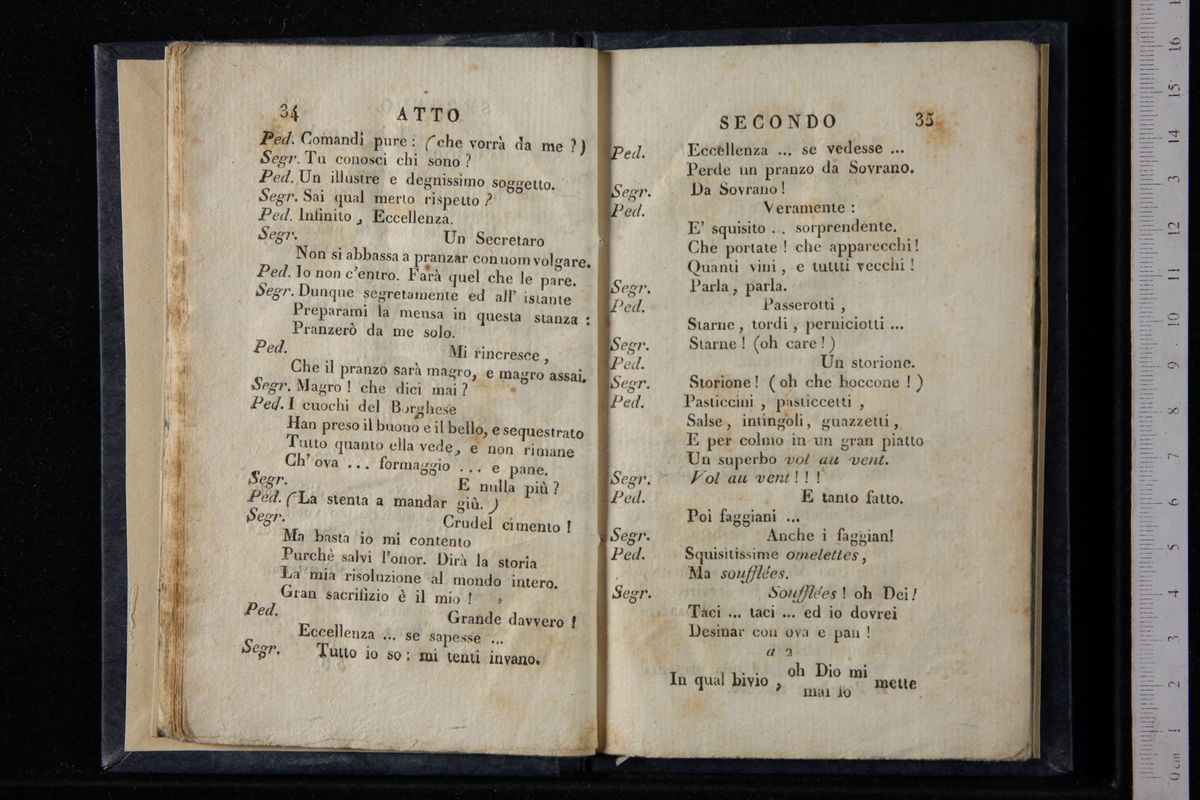 34 ATTO
Ped. Comandi pure: (che vorrà da me?)
Segr. Tu conosci chi sono?
Ped. Un illustre e degnissimo soggetto.
Segr. Sai qual merto rispetto?
Ped. Infinito, Eccellenza.
Segr. Un Secretaro
Non si abbassa a pranzar con uom volgare.
Ped. Io non c'entro. Farà quel che le pare.
Segr. Dunque segretamente ed all' istante
Preparami la mensa in questa stanza:
Pranzerò da me solo.
Ped. Mi rincresce,
Che il pranzo sarà magro, e magro assai.
Segr. Magro! che dici mai?
Ped. I cuochi del Borghese
Han preso il buono e il bello, e sequestrato
Tutto quanto ella vede, e non rimane
Ch' ova ... formaggio ... e pane.
Segr. E nulla più?
Ped. (La stenta a mandar giù.)
Segr. Crudel cimento!
Ma basta io mi contento
Purchè salvi l'onor. Dirà la storia
La mia risoluzione al mondo intero.
Gran sacrifizio è il mio!
Ped. Grande davvero!
Eccellenza ... se sapesse ...
Segr. Tutto io so: mi tenti invano.
SECONDO 35
Ped. Eccellenza ... se vedesse ...
Perde un pranzo da Sovrano.
Segr. Da Sovrano!
Ped. Veramente:
E' squisito .. sorprendente.
Che portate! che apparecchi!
Quanti vini, e tuttti vecchi!
Segr. Parla, parla.
Ped. Passerotti,
Starne, tordi, perniciotti ...
Segr. Starne! (oh care!)
Ped. Un storione.
Segr. Storione! (oh che boccone!)
Ped. Pasticcini, pasticcetti,
Salse, intingoli, guazzetti,
E per colmo in un gran piatto
Un superbo vol au vent.
Segr. Vol au vent!!!
Ped. E tanto fatto.
Poi faggiani ...
Segr. Anche i faggian!
Ped. Squisitissime omelettes,
Ma soufflées.
Segr. Soufflées! oh Dei!
Taci ... taci ... ed io dovrei
Desinar con ova e pan!
a 2
In qual bivio, oh Dio mi mette
mai lo
0 cm 1 2 3 4 5 6 7 8 9 10 11 12 13 14 15 16